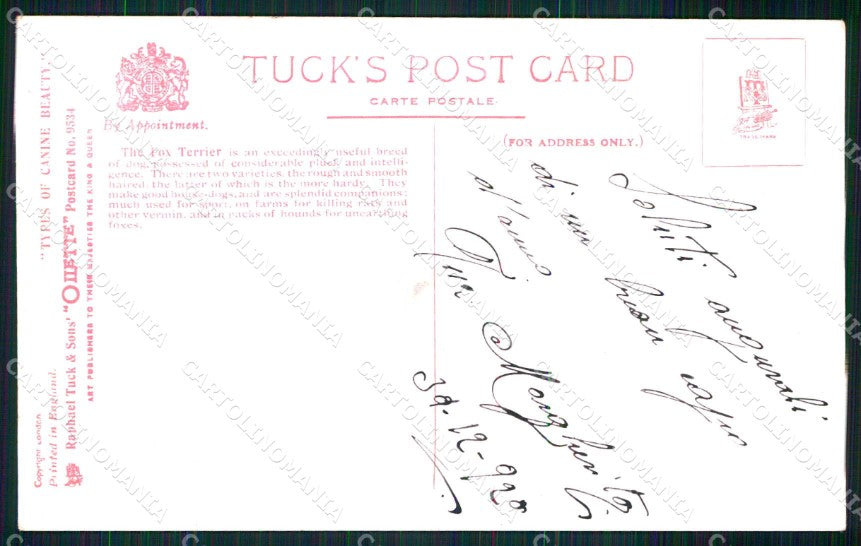 TUCK'S POST CARD
CARTE POSTALE.
By Appointment.
(FOR ADDRESS ONLY.)
The Fox Terrier is an exceedingly useful breed
of dog, possessed of considerable pluck and intelli-
gence. There are two varieties, the rough and smooth
haired, the latter of which is the more hardy. They
make good house-dogs, and are splendid companions;
much used for sport, on farms for killing rats and
other vermin, and in packs of hounds for unearthing
foxes.
"TYPES OF CANINE BEAUTY."
Raphael Tuck & Sons' "OILETTE" Postcard No. 9534
ART PUBLISHERS TO THEIR MAJESTIES THE KING & QUEEN
Copyright London.
Printed in England.
TRADE MARK
Saluti augurali
di un buon
d'anno
Tua Margherita
30.12.920
CARTOLINOMANIA